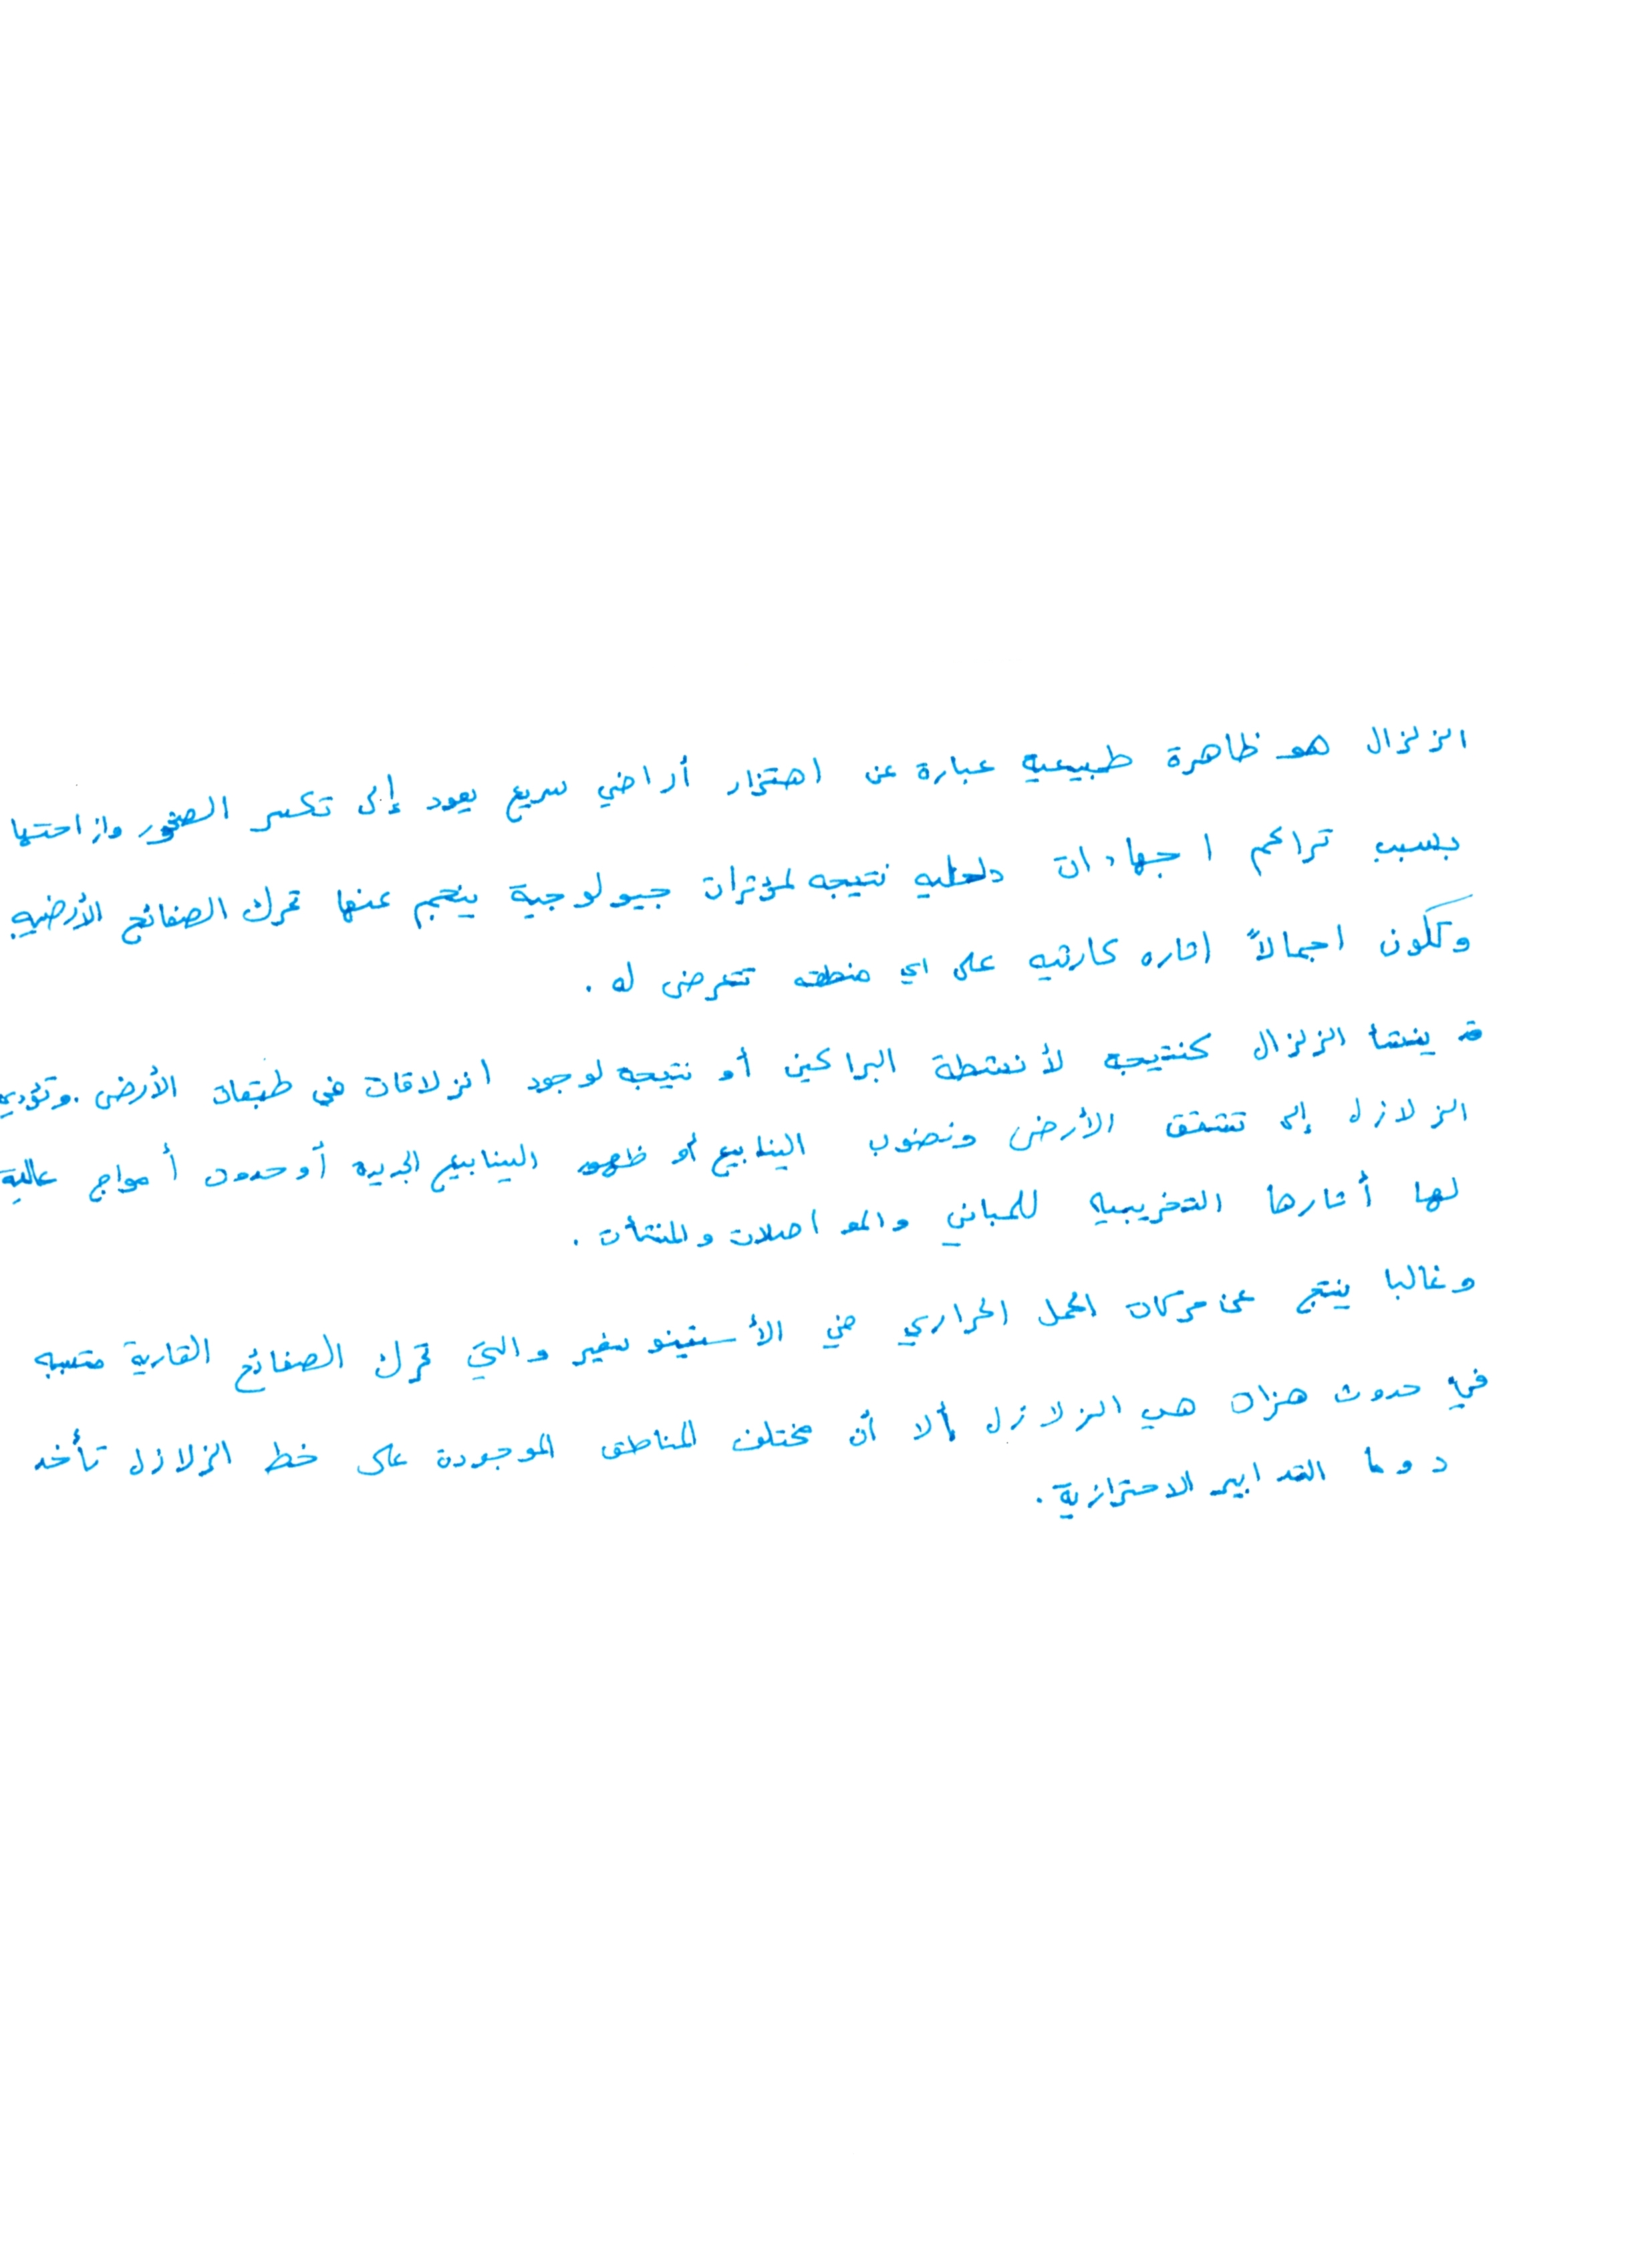 الزلزال هو ظاهرة طبيعيه عبارة عن اهتزار أراضي سريع يعود إلى تكسر الصخور وازاحتها
بسبب تراكم اجهادات داخليه نتيجه لمؤثرات جيولوجية ينجم عنها تحرك الصفائح الأرضيه
وتكون اجمالاً اثاره كارثيه على اي منطقه تتعرض له .
قد ينشا الزلزال كنتيجه لأنشطة البراكين أو نتيجه لوجود انزلاقات في طبقات الأرض . وتؤدي
الزلازل إلى تشقق الأرض ونضوب الينابيع أو ظهور الينابيع الجديده أو حدوث أمواج عالية
لها أثارها التخريبيه للمباني والمواصلات والمنشأت .
وغالبا ينتج عن حركات الحمل الحراري في الأستينوسفير والتي تحرك الصفائح القارية متسببه
في حدوث هزات هي الزلازل ألا أن مختلف المناطق الموجودة على خط الزلازل تأخذ
دوما التدابير الاحترازية .